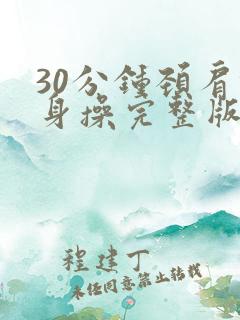 30分鍾頸肩
身操完整版
程建丁
未经同意禁止转载